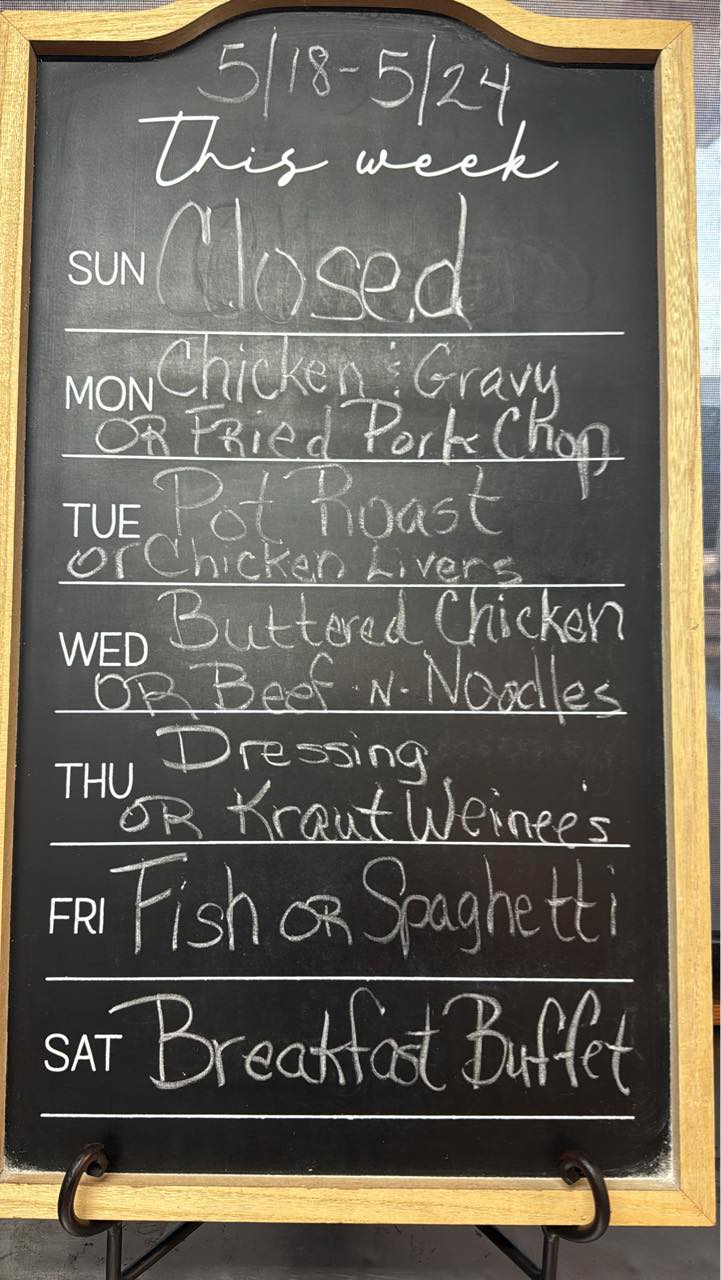 5/18-5/24
This week
SUN Closed
MON Chicken & Gravy
OR Fried Pork Chop
TUE Pot Roast
or Chicken Livers
WED Buttered Chicken
OR Beef N. Noodles
THU Dressing
OR Kraut Weinee's
FRI Fish OR Spaghetti
SAT Breakfast Buffet